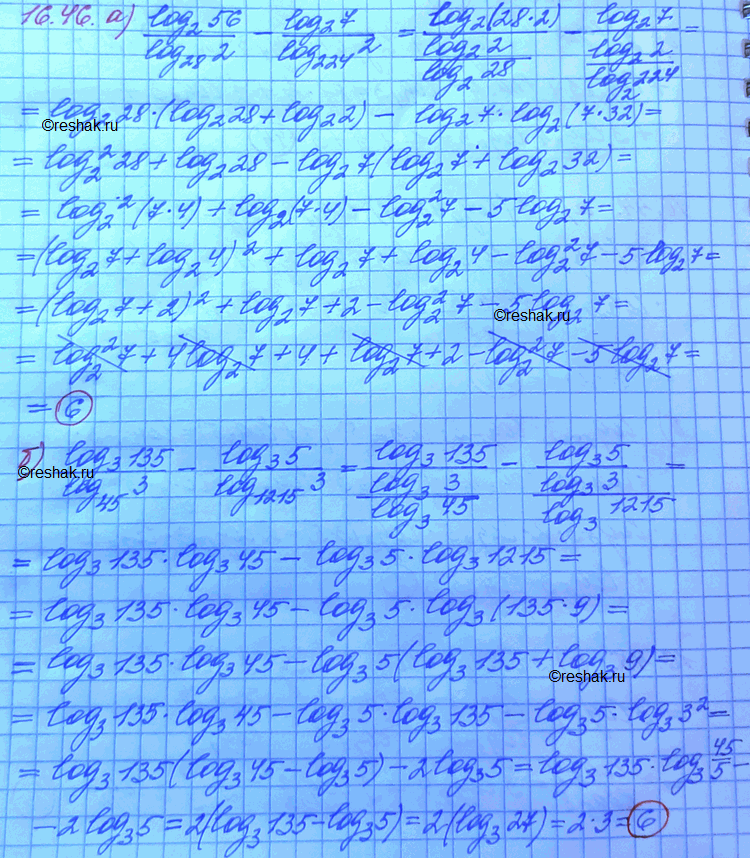 16.46. а) log₂56/log₂₈2 − log₂7/log₂₂₄2 = log₂(28·2)/(log₂2/log₂28) − log₂7/(log₂2/log₂224) =
= log₂28·(log₂28+log₂2) − log₂7·log₂(7·32)=
©reshak.ru
= log₂²28+log₂28−log₂7(log₂7+log₂32)=
= log₂²(7·4)+log₂(7·4)−log₂²7−5log₂7=
=(log₂7+log₂4)²+log₂7+log₂4−log₂²7−5log₂7=
=(log₂7+2)²+log₂7+2−log₂²7−5log₂7=
©reshak.ru
= log₂²7+4log₂7+4+log₂7+2−log₂²7−5log₂7=
= 6
б) log₃135/log₄₅3 − log₃5/log₁₂₁₅3 = log₃135/(log₃3/log₃45) − log₃5/(log₃3/log₃1215) =
©reshak.ru
= log₃135·log₃45−log₃5·log₃1215=
= log₃135·log₃45−log₃5·log₃(135·9)=
= log₃135·log₃45−log₃5(log₃135+log₃9)=
©reshak.ru
= log₃135·log₃45−log₃5·log₃135−log₃5·log₃3²=
= log₃135(log₃45−log₃5)−2log₃5=log₃135·log₃45/5−
−2log₃5=2(log₃135−log₃5)=2(log₃27)=2·3=6